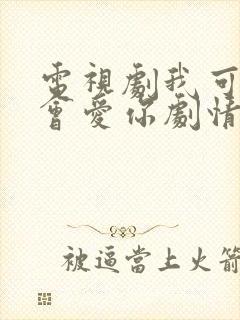 電視劇我可
會愛你劇情
被逼當上火箭